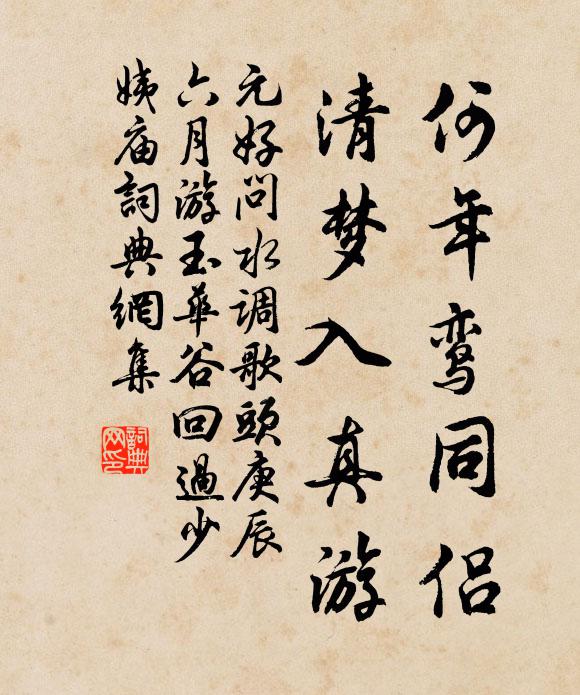 何年鸾同侣
清梦入真游
元好问水调歌頭庚辰
六月游玉華谷回過少
姨庙詞典網集
詞典网印